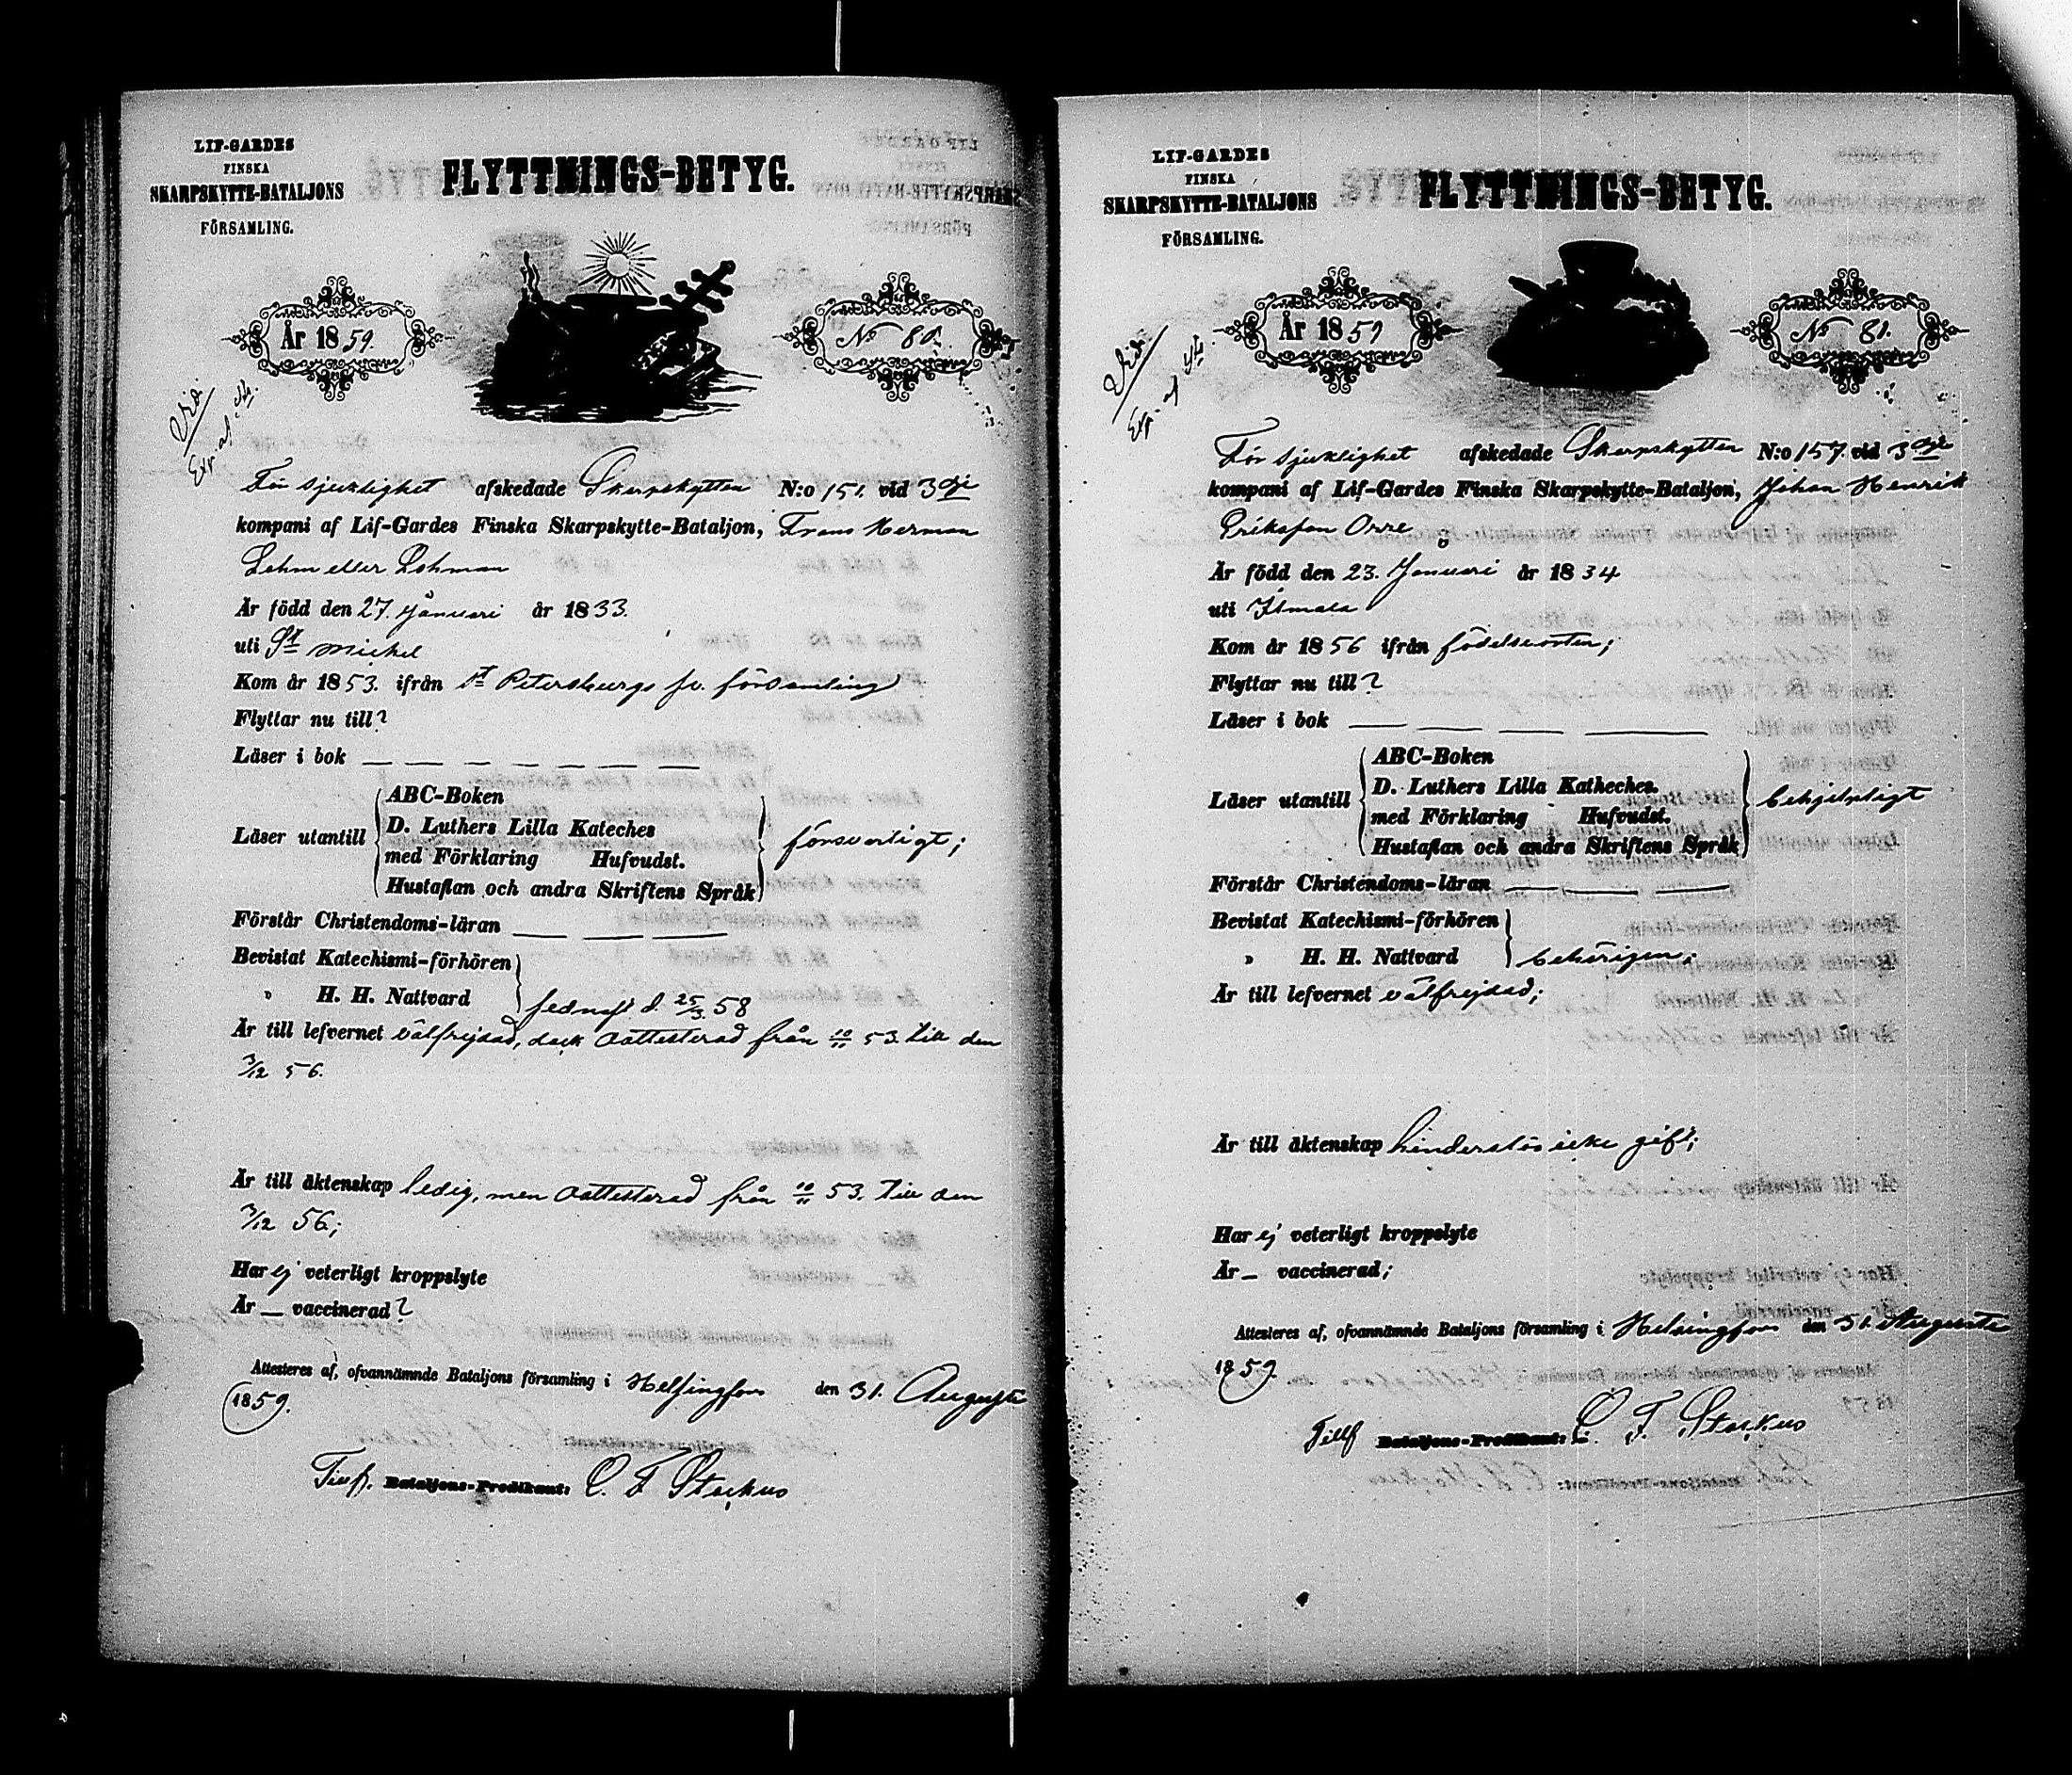 LIF-GARDES
FINSKA
SKARPSKYTTE-BATALJONS
FÖRSAMLING.
FLYTTNINGS-BETYG.
År 1859.
No 80.
Vidi
För sjuklighet afskedade Skarpskytten N:o 151. vid 3dje
kompani af Lif-Gardes Finska Skarpskytte-Bataljon, Frans Herman
Lehm eller Lehman
Är född den 27. Januari år 1833.
uti St Michel
Kom år 1853. ifrån St Petersburgs sv. församling
Flyttar nu till?
Läser i bok — — — — — — —
Läser utantill
ABC-Boken
D. Luthers Lilla Kateches
med Förklaring Hufvudst.
Hustaflan och andra Skriftens Språk
försvarligt;
Förstår Christendoms-läran — — —
Bevistat Katechismi-förhören
" H. H. Nattvard
sednast d. 25/3 58
Är till lefvernet välfrejdad, dock oattesterad från 10/11 53. till den
3/12 56.
Är till äktenskap ledig, men oattesterad från 10/11 53. till den
3/12 56;
Har ej veterligt kroppslyte
Är — vaccinerad?
Attesteres af, ofvannämnde Bataljons församling i Helsingfors den 31. Augusti
1859.
Bataljons-Predikant: C. F. Storkus
LIF-GARDES
FINSKA
SKARPSKYTTE-BATALJONS
FÖRSAMLING.
FLYTTNINGS-BETYG.
År 1859
No 81.
Vidi
För sjuklighet afskedade Skarpskytten N:o 157. vid 3dje
kompani af Lif-Gardes Finska Skarpskytte-Bataljon, Johan Henrik
Eriksson Orre
Är född den 23. Januari år 1834
uti Ilmala
Kom år 1856 ifrån födelseorten;
Flyttar nu till?
Läser i bok — — — —
Läser utantill
ABC-Boken
D. Luthers Lilla Katheches.
med Förklaring Hufvudst.
Hustaflan och andra Skriftens Språk
behjelpligt
Förstår Christendoms-läran — — —
Bevistat Katechismi-förhören
" H. H. Nattvard
behörigen;
Är till lefvernet välfrejdad;
Är till äktenskap hinderslös icke gift;
Har ej veterligt kroppslyte
Är — vaccinerad;
Attesteres af, ofvannämnde Bataljons församling i Helsingfors den 31. Augusti
1859.
Tillf Bataljons-Predikant: C. F. Storkus